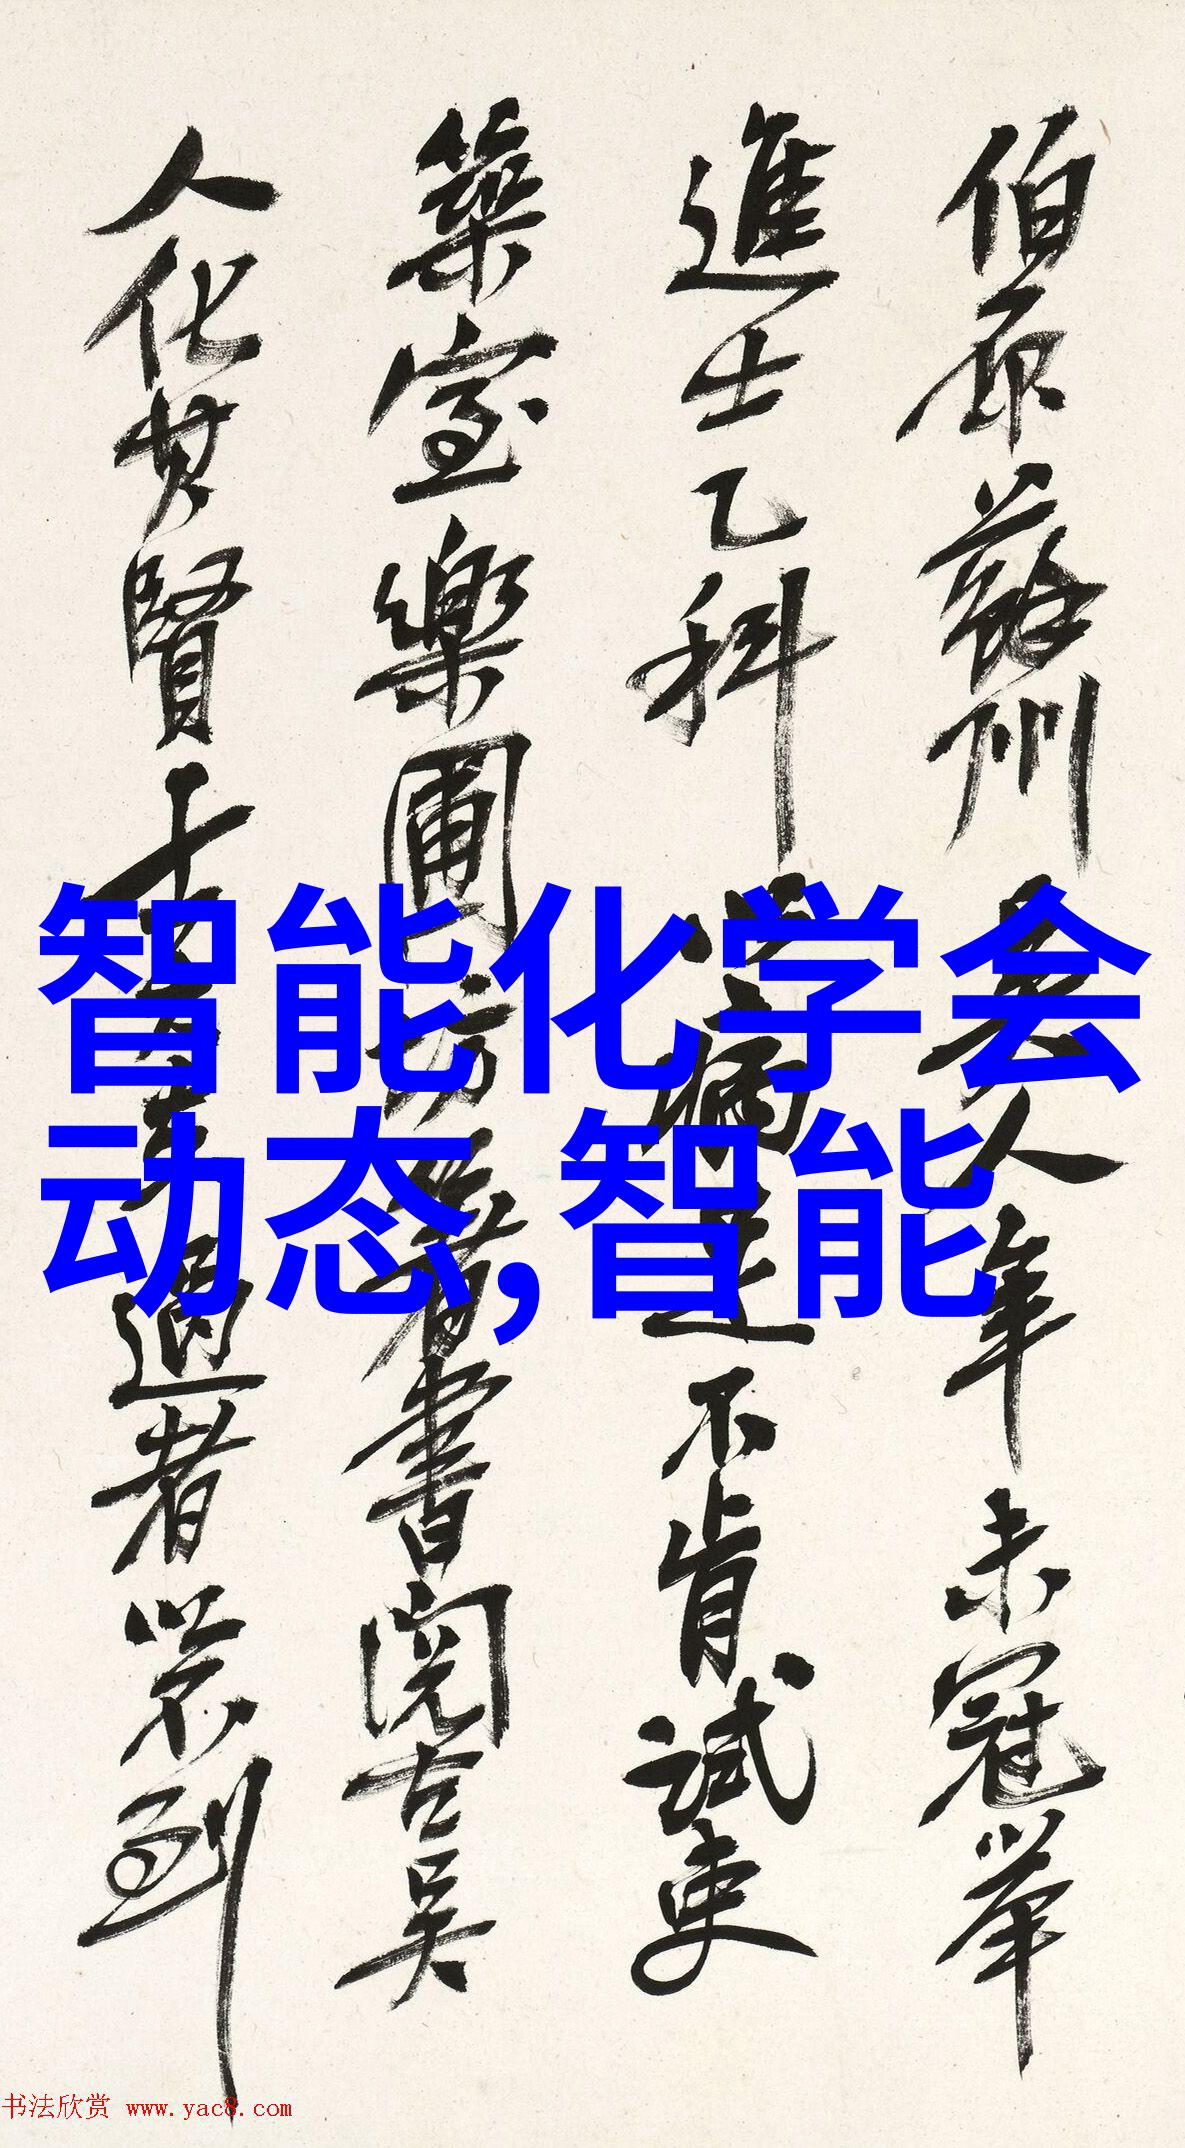 伯原蘇州吴人年未冠舉
進士乙科以病足不肯試吏
築室樂圃坊著書閱古吴
人化其賢士大夫過者以不到
智能化学会
动态,智能
书法欣赏 www.yac8.com